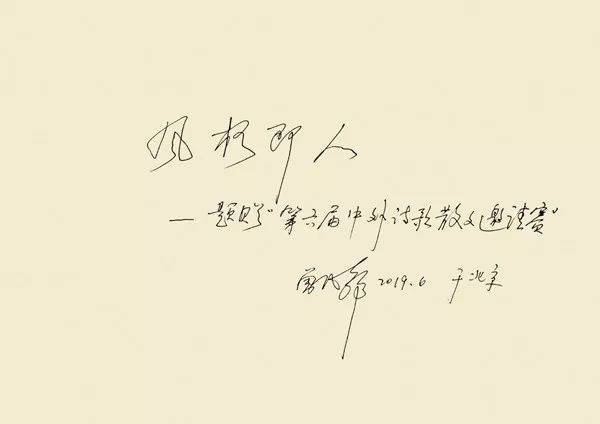 风格即人
—题赠“第六届中外诗歌散文邀请赛”
曾凡华 2019.6 于北京